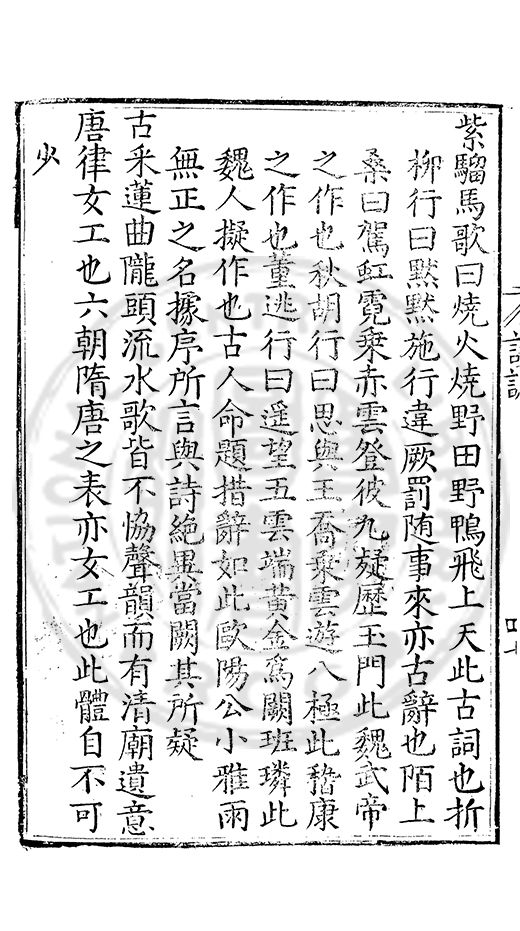 紫騮馬歌曰燒火燒野田野鴨飛上天此古詞也折
柳行曰默默施行違厥罰随事來亦古辭也陌上
桑曰駕虹霓乗赤雲登彼九疑歴玉門此魏武帝
之作也秋胡行曰思與王喬乗雲遊八極此嵇康
之作也董逃行曰遥望五雲端黄金爲闕班璘此
魏人擬作也古人命題措辭如此歐陽公小雅雨
無正之名據序所言與詩絶異當闕其所疑
古采蓮曲隴頭流水歌皆不恊聲韻而有清廟遺意
唐律女工也六朝隋唐之表亦女工也此體自不可
少